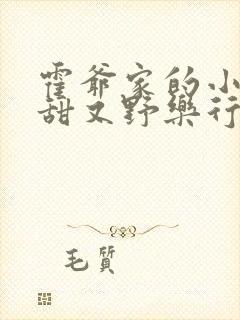 霍爷家的小
甜又野乐行
毛質